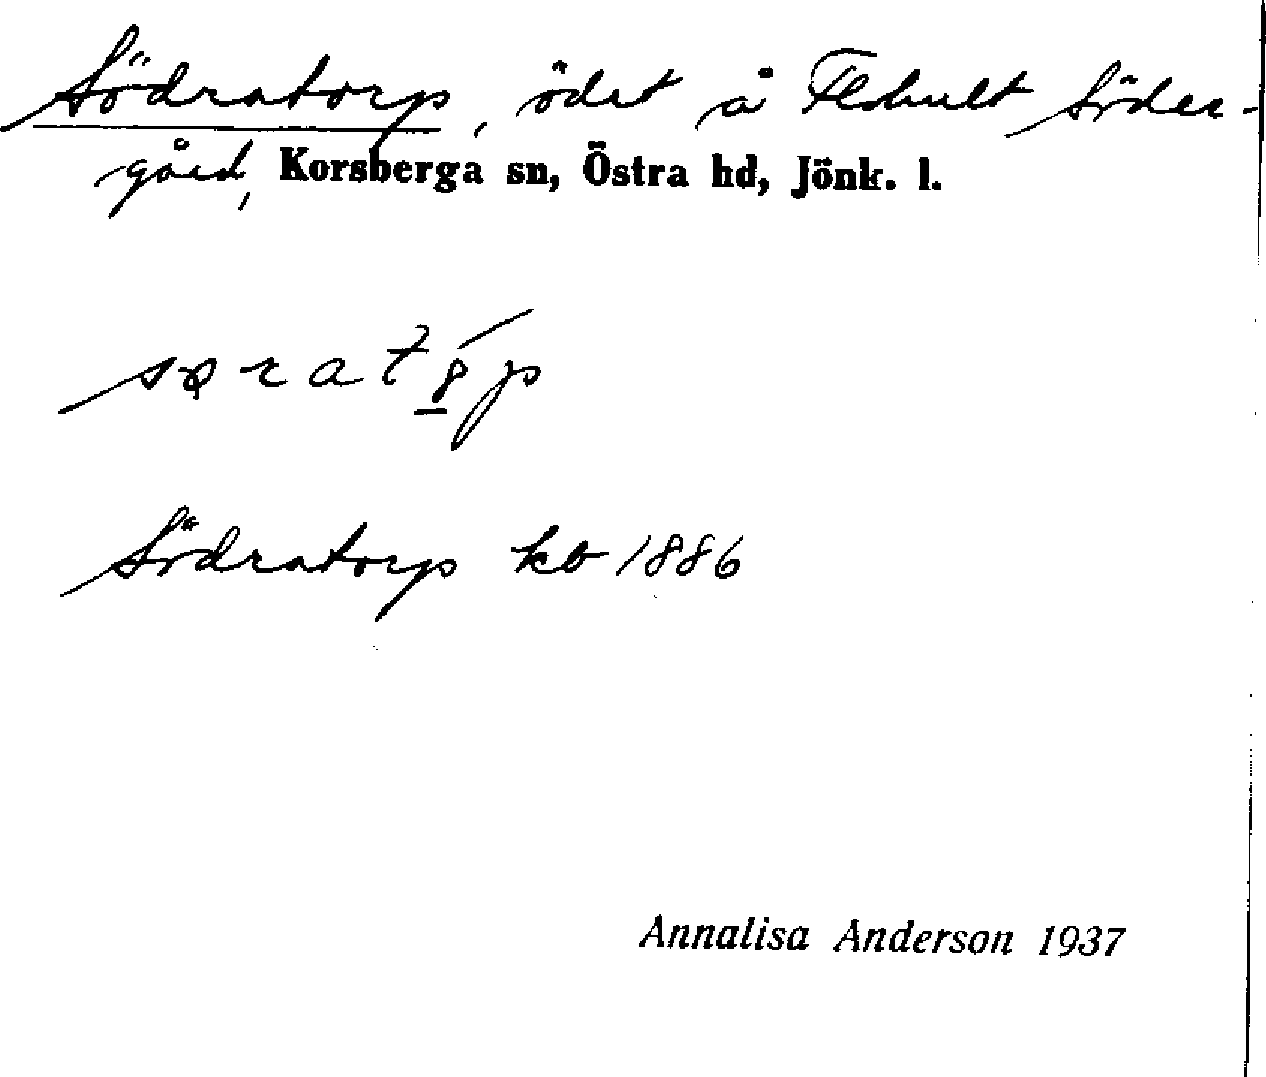 Södratorp, ödet å Flohult Söder-
gård, Korsberga sn, Östra hd, Jönk. l.
Södratorp kb 1886
Annalisa Anderson 1937